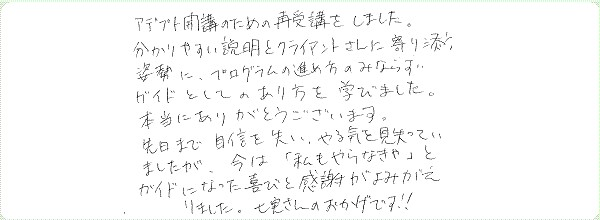 アデプト開講のための再受講をしました。
分かりやすい説明とクライアントさんに寄り添う
姿勢に、プログラムの進め方のみならず
ガイドとしてのあり方を学びました。
本当にありがとうございます。
先日まで自信を失い、やる気を見失ってい
ましたが、今は「私もやらなきゃ」と
ガイドになった喜びと感謝がよみがえ
りました。七実さんのおかげです!!